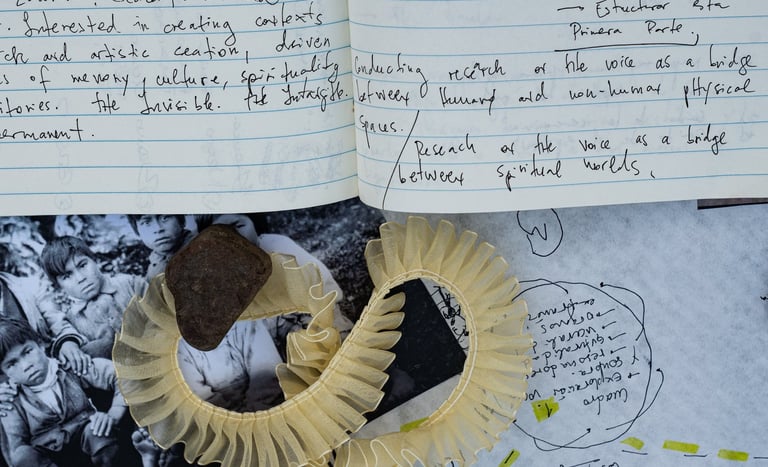 . Interested in creating contexts
rch and artistic ceation, driven
s of memory, culture, spirituality
itories. the Invisible. the Intangible.
ermanent.
→ Estructurar esta
Primera Parte.
Conducting research of the voice as a bridge
between Humans and non-human physical
spaces.
Reseach of the voice as a bridge
between spiritual worlds.
N
Cuadro
→ exploración
→ resonadores
→ guturalid